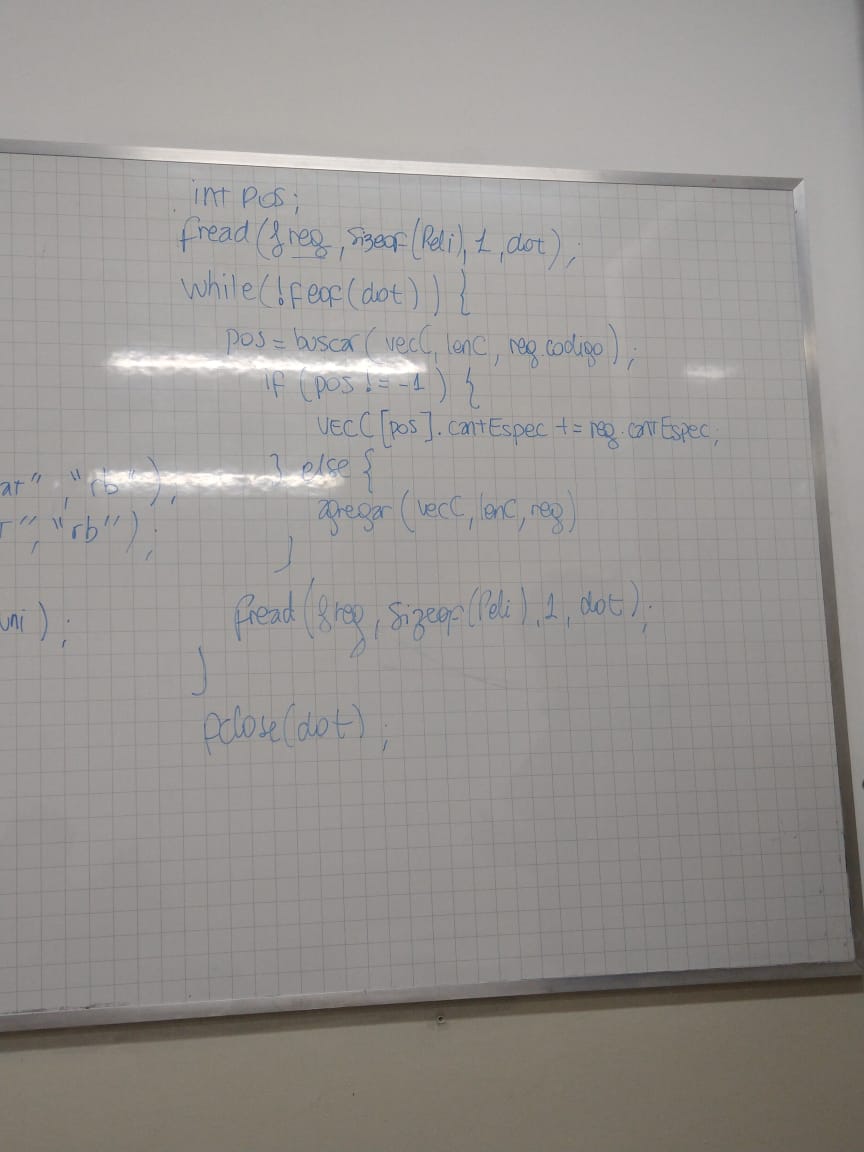 int pos;
fread(&reg, sizeof(Peli), 1, dot);
while(!feof(dot)) {
pos = buscar(vecC, lenC, reg.codigo);
if (pos != -1) {
vecC[pos].cantEspec += reg.cantEspec;
at", "rb");
} else {
", "rb");
agregar(vecC, lenC, reg)
}
uni);
fread(&reg, sizeof(Peli), 1, dot);
}
fclose(dot);